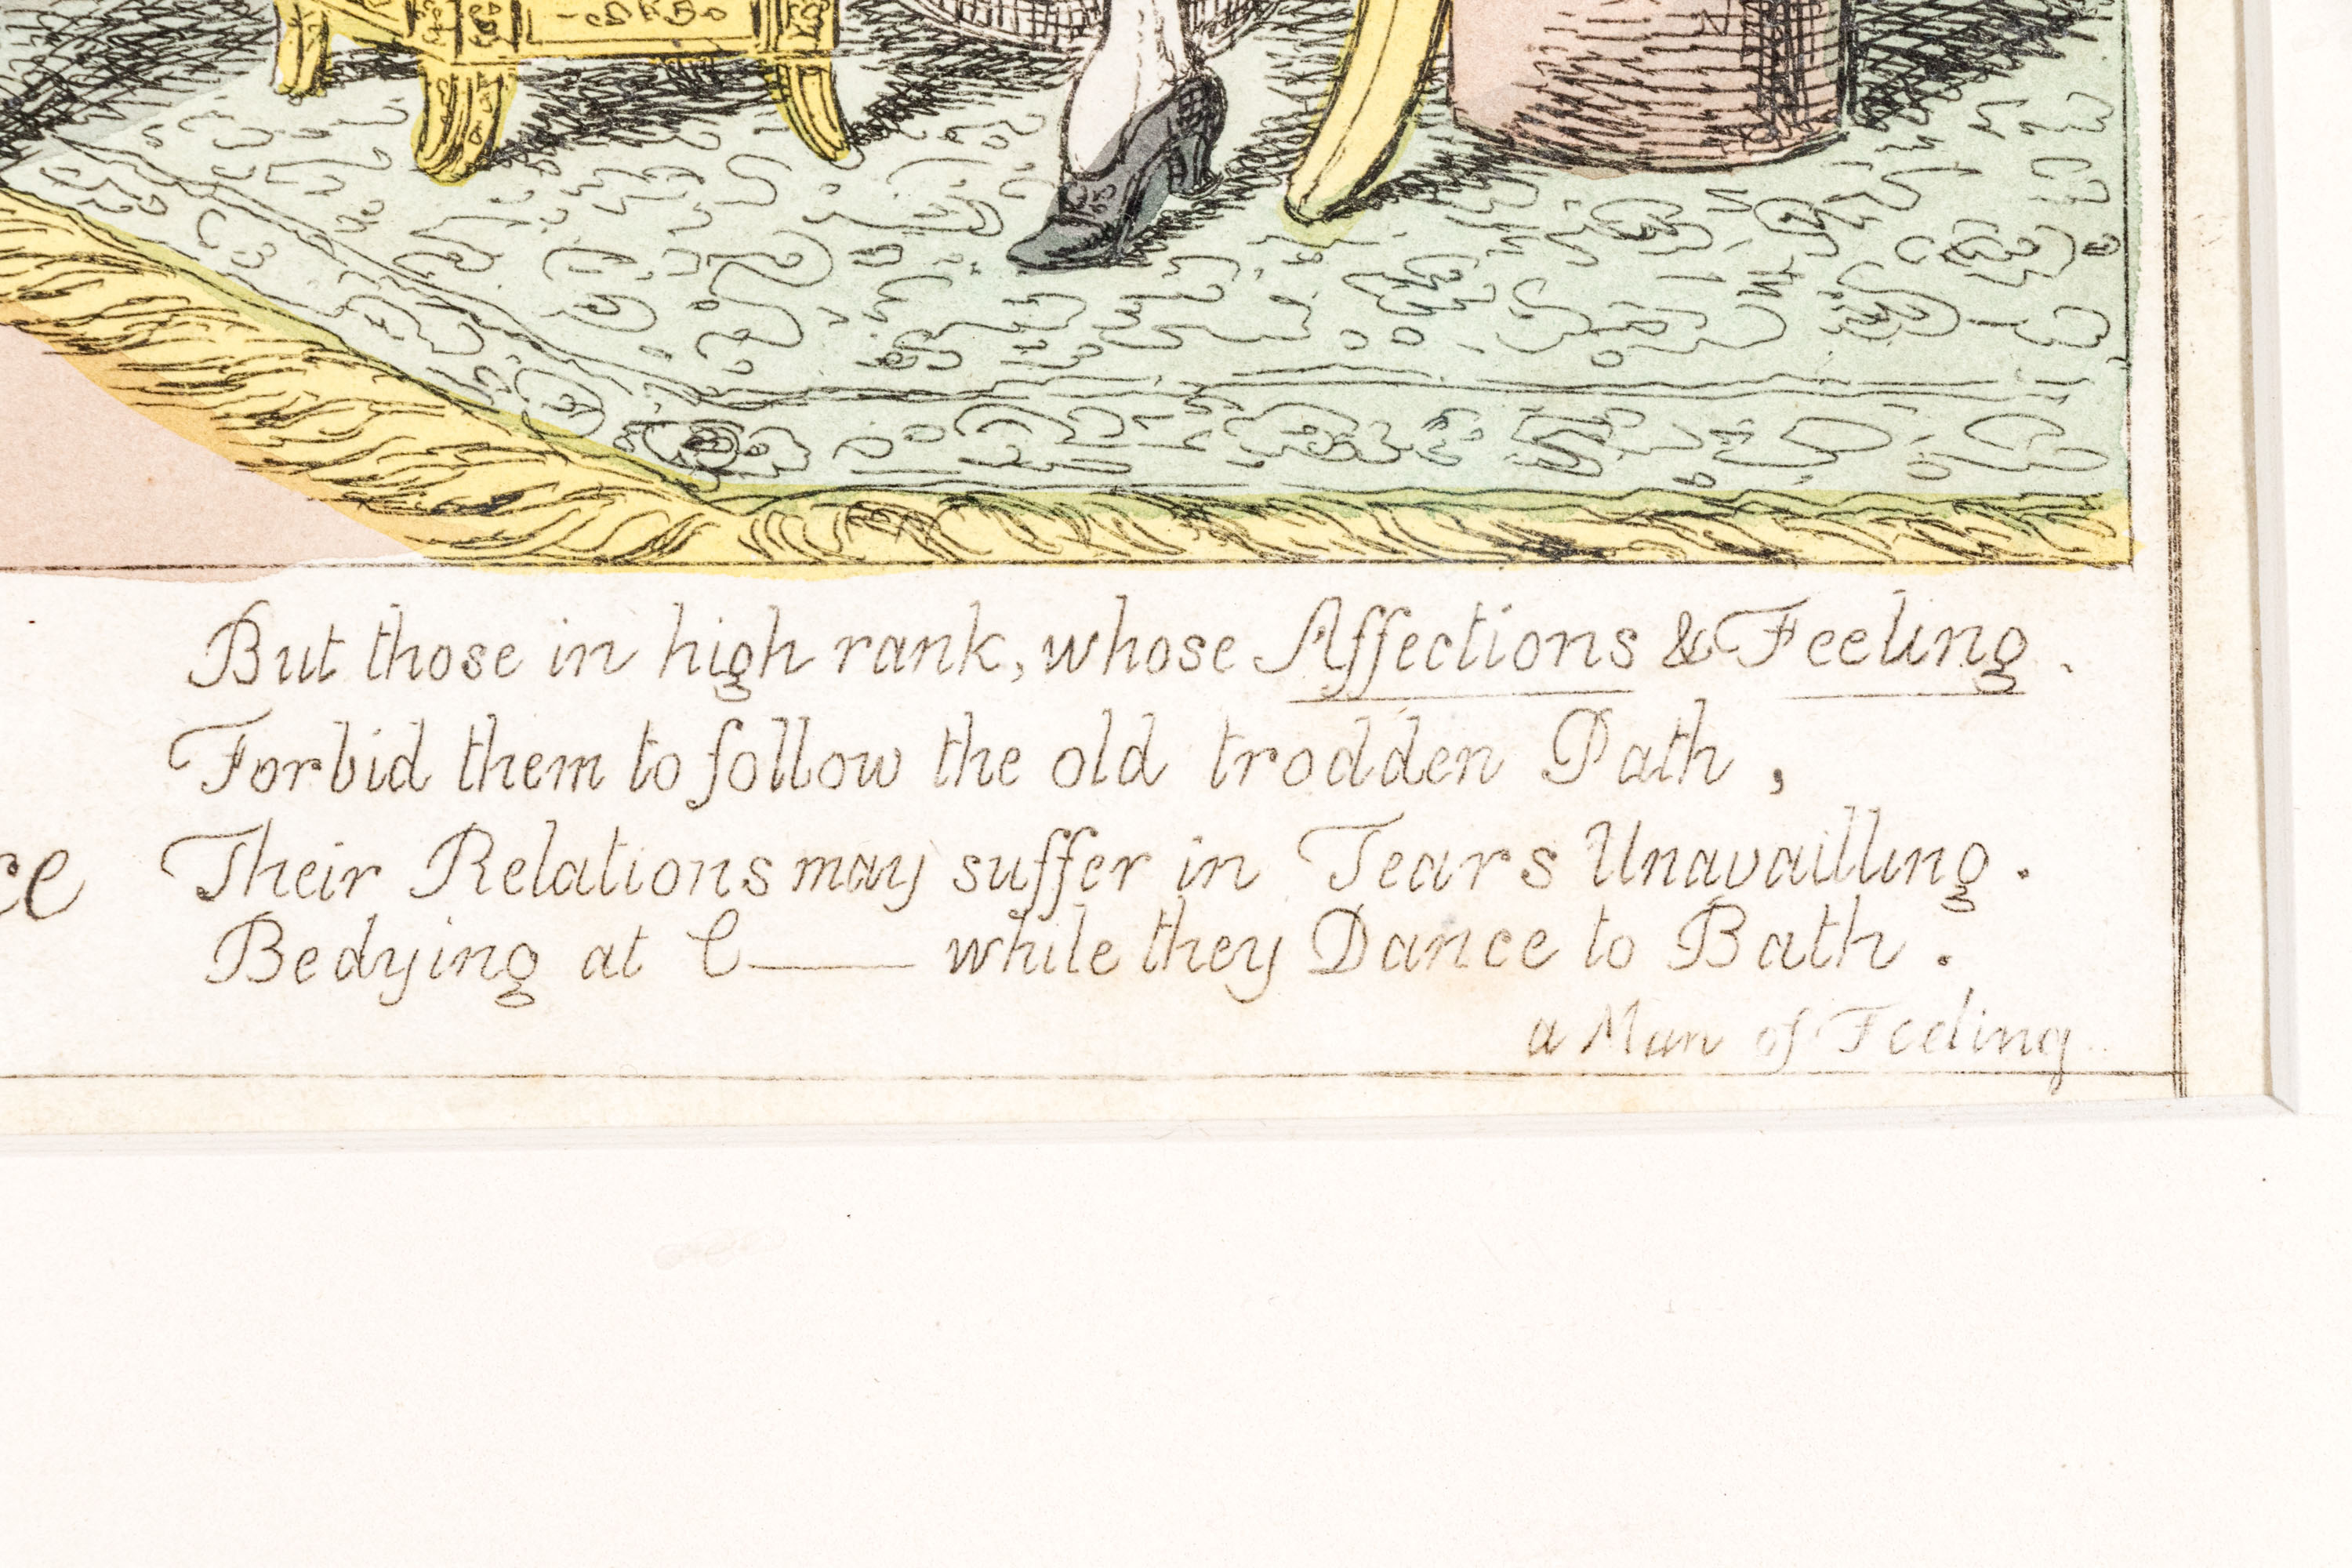 But those in high rank, whose Affections & Feeling.
Forbid them to follow the old trodden Path,
Their Relations may suffer in Tears Unavailling.
Be dying at C—— while they Dance to Bath.
a Man of Feeling..